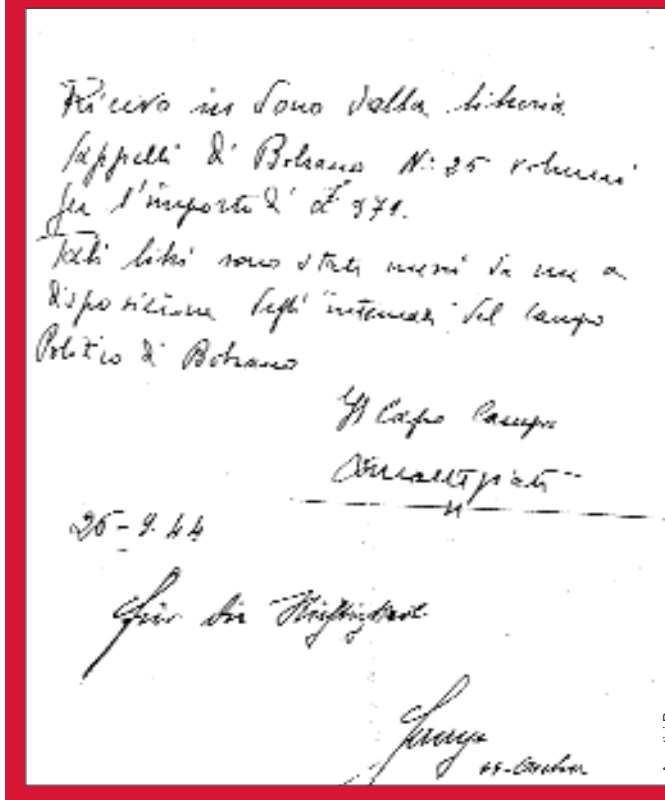 Ricevo in dono dalla libreria
Cappelli di Bolzano N: 25 volumi
per l'importo di £ 979.
Tali libri sono stati messi da me a
disposizione degli internati del campo
Politico di Bolzano
Il Capo Campo
26-9.44
Für die Richtigkeit